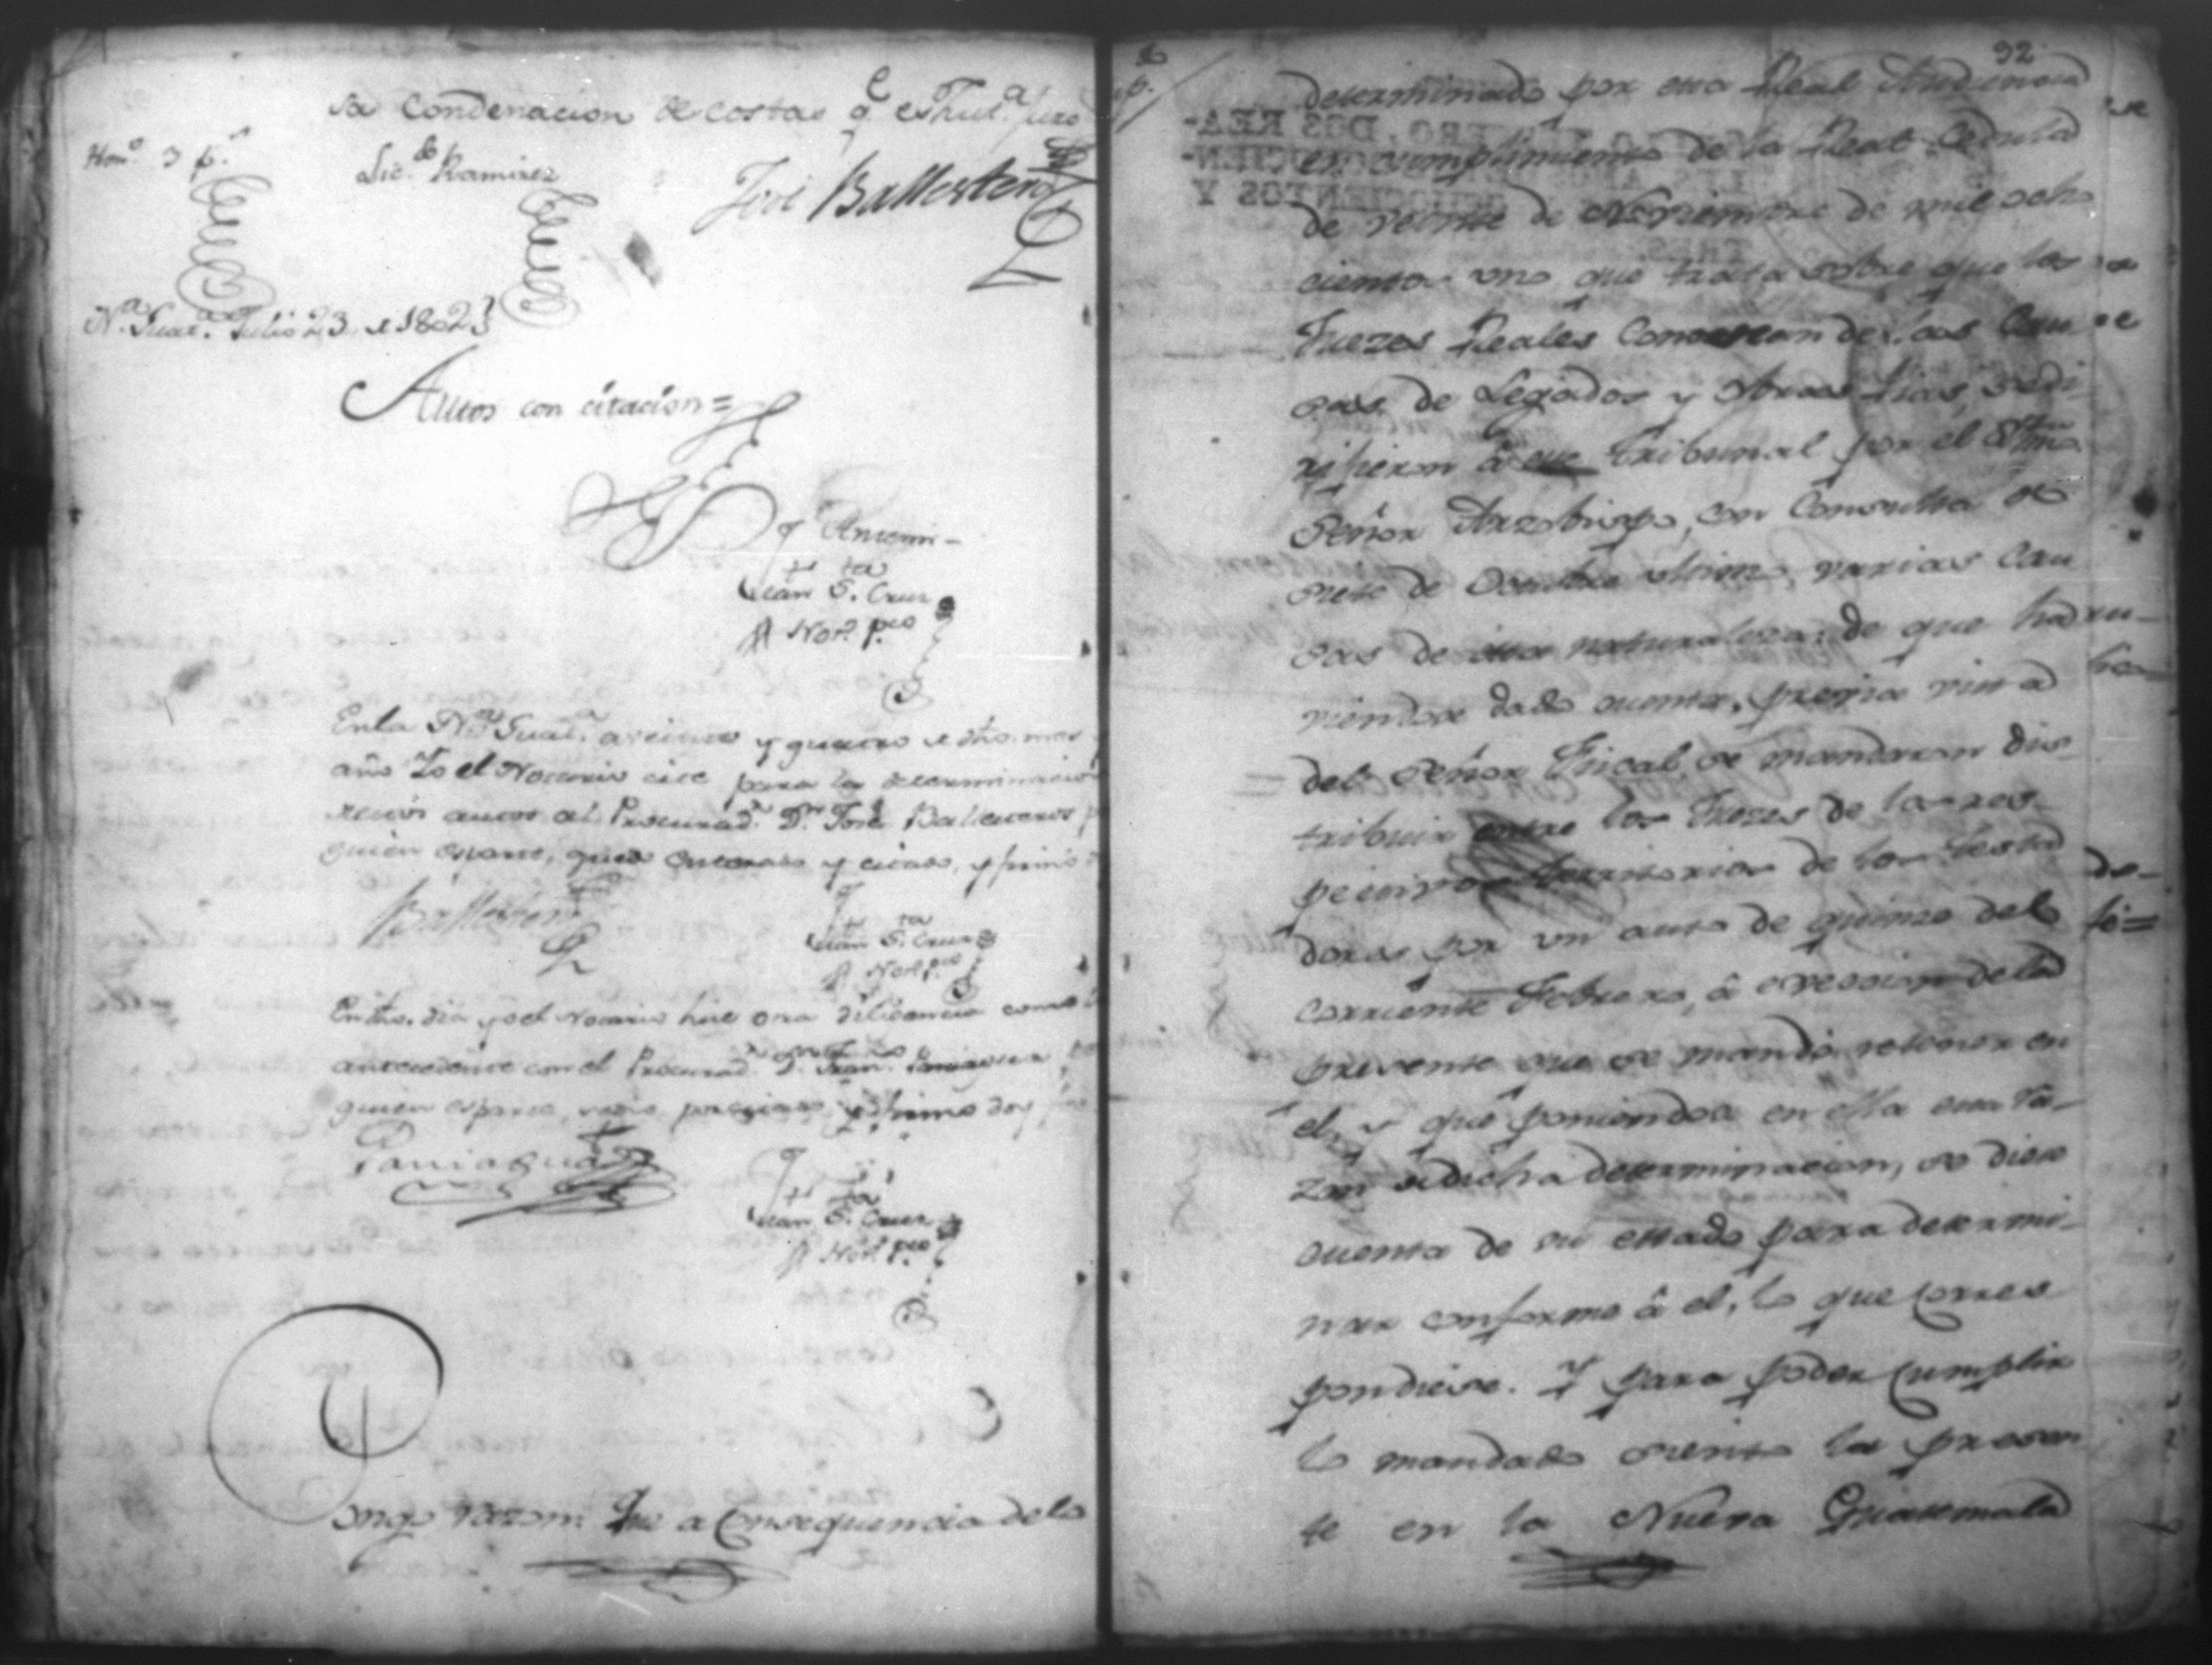 sa Condenacion de costas q.e es Just.a Juro
Hon.s 3 p.s
Lic.do Ramirez
José Ballesteros
N.a Guat.a Julio 23 de 1802
Autos con citacion=
Ante mi
Juan S.ta Cruz
Not.o p.co
En la N.a Guat.a a veinte y quatro de dho. mes
año Yo el Notario cité para la determinacion
de estos autos al Procurad.r D.n José Ballesteros p
quien es parte, quedo enterado y citado, y firmó
Ballesteros
Juan S.ta Cruz
Not.o p.co
En dho. dia yo el Notario hice otra diligencia como la
antecedente con el Procurad.r D.n Fran.co Paniagua
quien es parte, y firmó doy fee
Paniagua
Juan S.ta Cruz
Not.o p.co
Pongo razon: Que a Consequencia de lo
92
determinado por esta Real Audiencia
en cumplimiento de la Real Cedula
de veinte de Noviembre de mil ocho
cientos uno que trata sobre que los
Juezes Reales Conozcan de las Cau
sas de Legados y Obras Pias, se di
rijieron â este Tribunal por el Yltmo
Señor Arzobispo, con Consulta de
siete de Octubre ultimo, varias Cau
sas de esta naturaleza: de que ha
viendose dado cuenta, previa vista
del Señor Fiscal, se mandaron dis
tribuir entre los Juezes de los res
pectivos territorios de los Testa
dores por un auto de quinze del
corriente Febrero, â excepcion de la
presente que se mandó retener en
el, y que poniendose en ella esta ra-
zon de dicha determinacion, se diese
cuenta de su estado para determi-
nar conforme â el, lo que corres
pondiese. Y para poder Cumplir
lo mandado siento la presen
te en la Nueva Guatemala